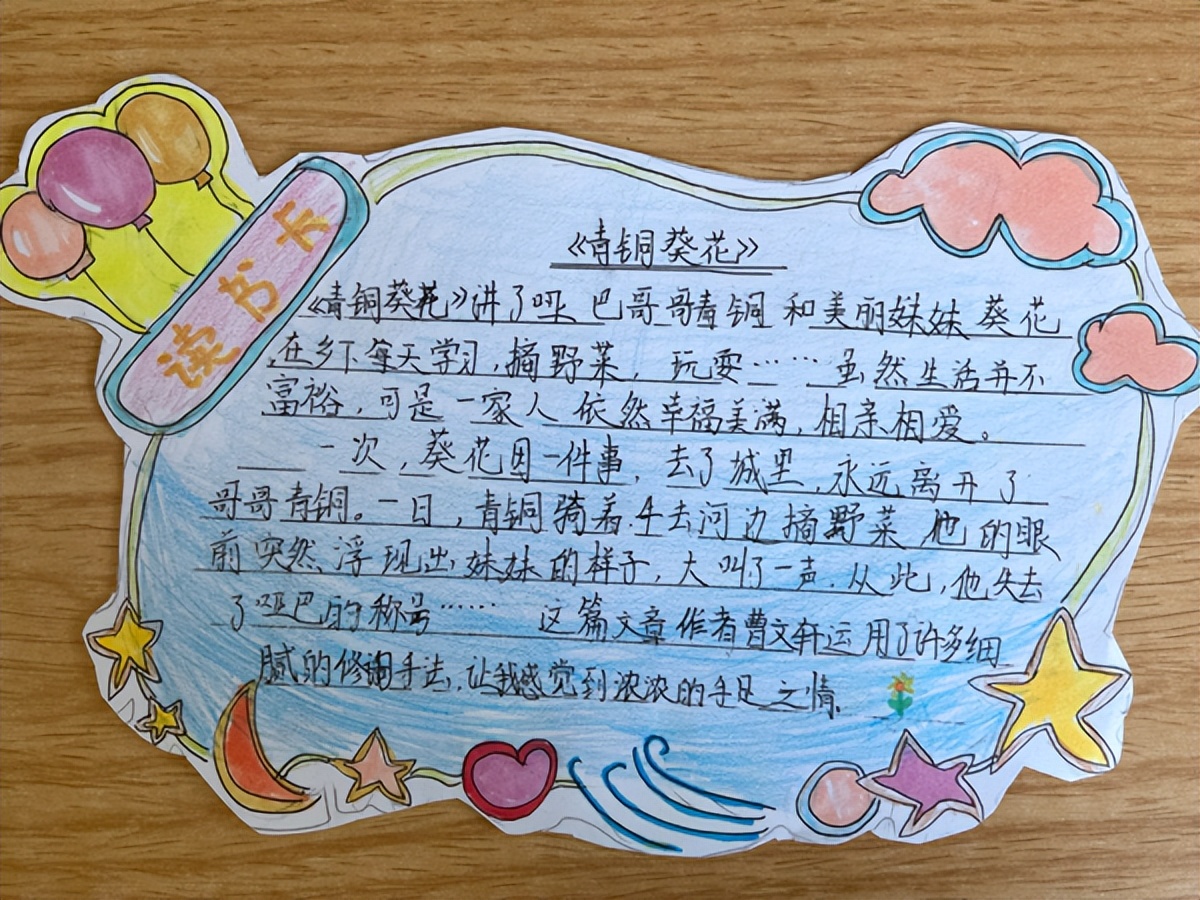 读书卡
《青铜葵花》
《青铜葵花》讲了哑巴哥哥青铜和美丽妹妹葵花
在乡下每天学习,摘野菜,玩耍……虽然生活并不
富裕,可是一家人依然幸福美满,相亲相爱。
一次,葵花因一件事,去了城里,永远离开了
哥哥青铜。一日,青铜骑着牛去河边摘野菜,他的眼
前突然浮现出妹妹的样子,大叫了一声.从此,他失去
了哑巴的称号……这篇文章作者曹文轩运用了许多细
腻的修词手法,让我感觉到浓浓的手足之情.